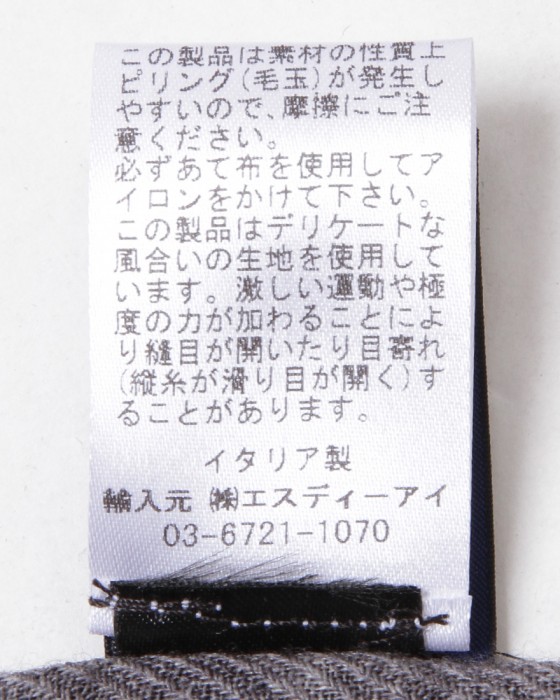 この製品は素材の性質上
ピリング(毛玉)が発生し
やすいので、摩擦にご注
意ください。
必ずあて布を使用してア
イロンをかけて下さい。
この製品はデリケートな
風合いの生地を使用して
います。激しい運動や極
度の力が加わることによ
り縫目が開いたり目寄れ
(縦糸が滑り目が開く)す
ることがあります。
イタリア製
輸入元 ㈱エスディーアイ
03-6721-1070